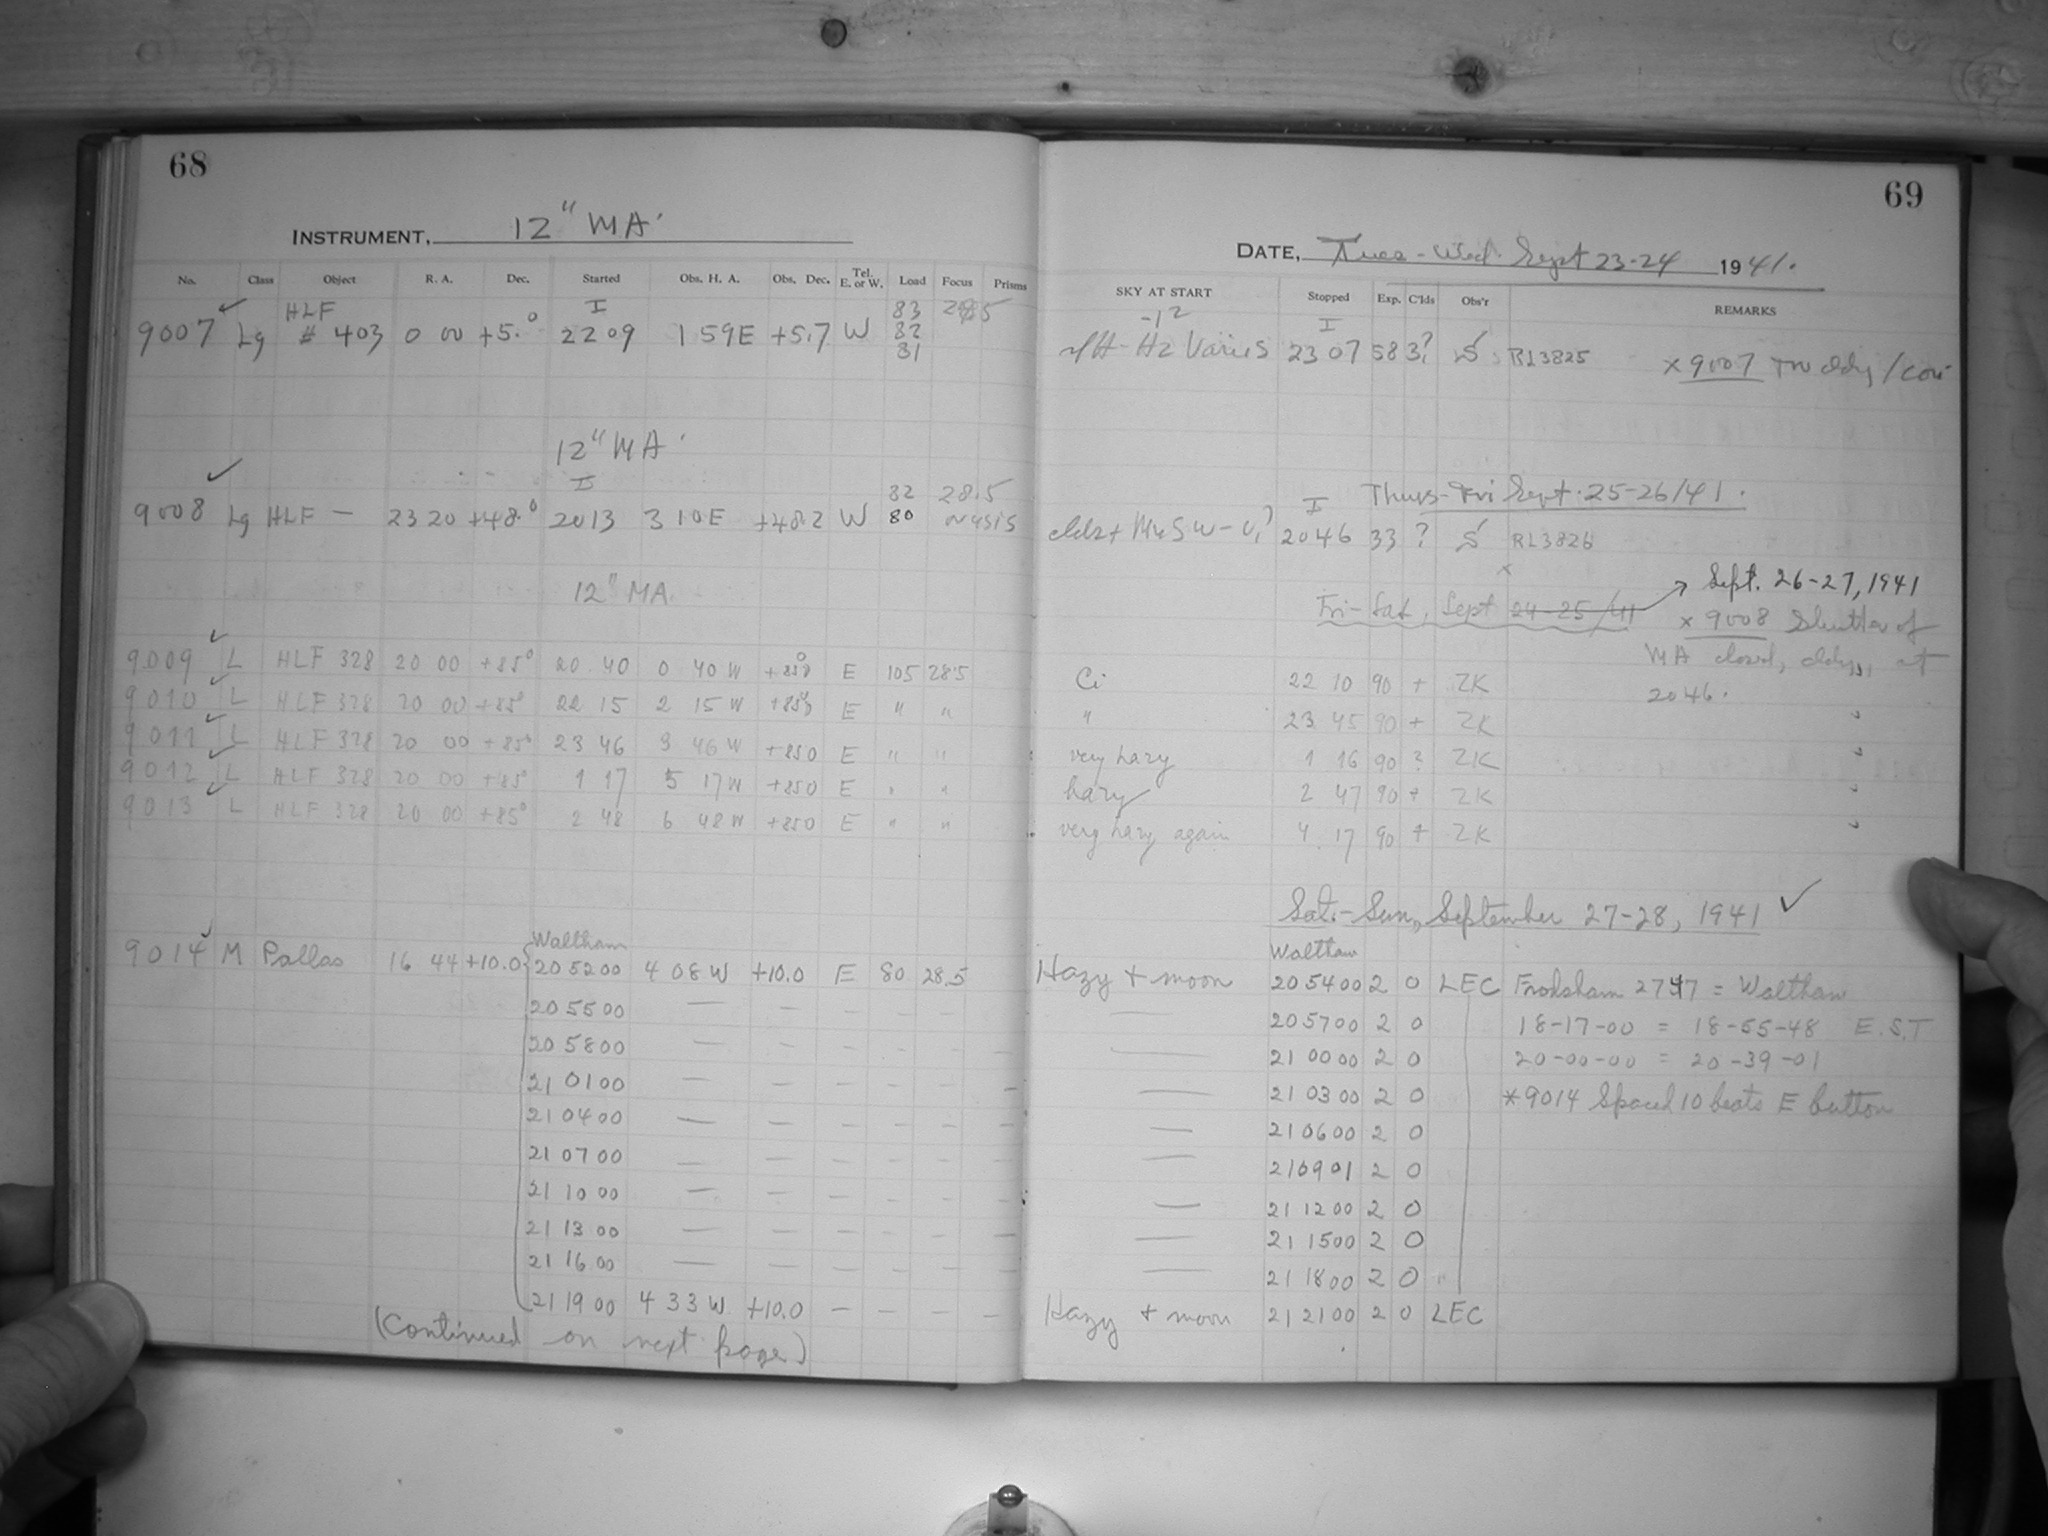 68
INSTRUMENT, 12" MA.
No. Class Object R. A. Dec. Started Obs. H. A. Obs. Dec. Tel. E. or W. Load Focus Prisms
HLF I 83
9007 Lg # 403 0 00 +5.° 2209 1 59E +5.7 W 82
81
12" MA.
I 82 28.5
9008 Lg HLF — 23 20 +48.° 2013 3 10E +48.2 W 80
12" MA.
9009 L HLF 328 20 00 +85° 20 40 0 40 W +85° E 105 28.5
9010 L HLF 328 20 00 +85° 22 15 2 15 W +85° E " "
9011 L HLF 328 20 00 +85° 23 46 3 46 W +850 E " "
9012 L HLF 328 20 00 +85° 1 17 5 17 W +850 E " "
9013 L HLF 328 20 00 +85° 2 48 6 48 W +850 E " "
Waltham
9014 M Pallas 16 44 +10.0 20 52 00 4 08 W +10.0 E 80 28.5
20 55 00 — — — — —
20 58 00 — — — — — —
21 01 00 — — — — — —
21 04 00 — — — — — —
21 07 00 — — — — — —
21 10 00 — — — — — —
21 13 00 — — — — — —
21 16 00 — — — — — —
21 19 00 4 33 W. +10.0 — — — —
(Continued on next page)
69
DATE, Tues - Wed. Sept 23-24 1941.
SKY AT START Stopped Exp. C'lds Obs'r REMARKS
-12 I
Hz Varies 23 07 58 3? RL3825 x 9007
Thurs-Fri Sept. 25-26/41.
I
2046 33 ? RL3826
x
Sept. 26-27, 1941
Fri-Sat, Sept 24-25/41
x 9008 Shutter of
MA closed, cldy, at
2046.
Ci 22 10 90 + ZK
" 23 45 90 + ZK
very hazy 1 16 90 ? ZK
hazy 2 47 90 + ZK
very hazy again 4 17 90 + ZK
Sat.-Sun., September 27-28, 1941
Waltham
Hazy + moon 20 54 00 2 0 LEC Frodsham 2747 = Waltham
— 20 57 00 2 0 18-17-00 = 18-55-48 E.S.T
— 21 00 00 2 0 20-00-00 = 20-39-01
— 21 03 00 2 0 *9014 Spaced 10 beats E button
— 21 06 00 2 0
— 21 09 01 2 0
— 21 12 00 2 0
— 21 15 00 2 0
— 21 18 00 2 0 "
Hazy + moon 21 21 00 2 0 LEC